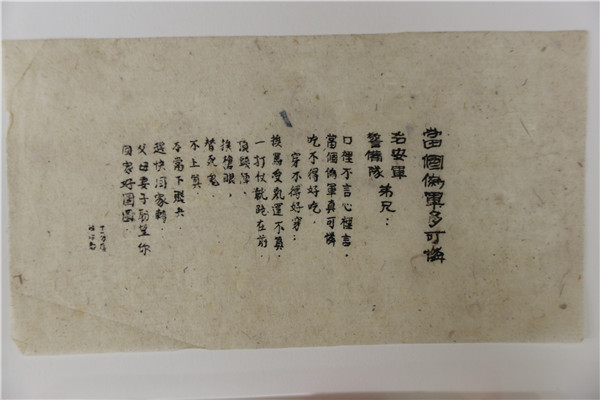 當個偽軍多可憐
治安軍
警備隊 弟兄：
口裡不言心裡言．
當個偽軍真可憐
吃不得好吃．
穿不得好穿；
挨罵受氣還不算．
一打仗就跑在前．
頂頭陣，
挨槍眼，
替死鬼
不上算
當下賤
趕快回家轉
父母妻子盼望你
回家好團圓